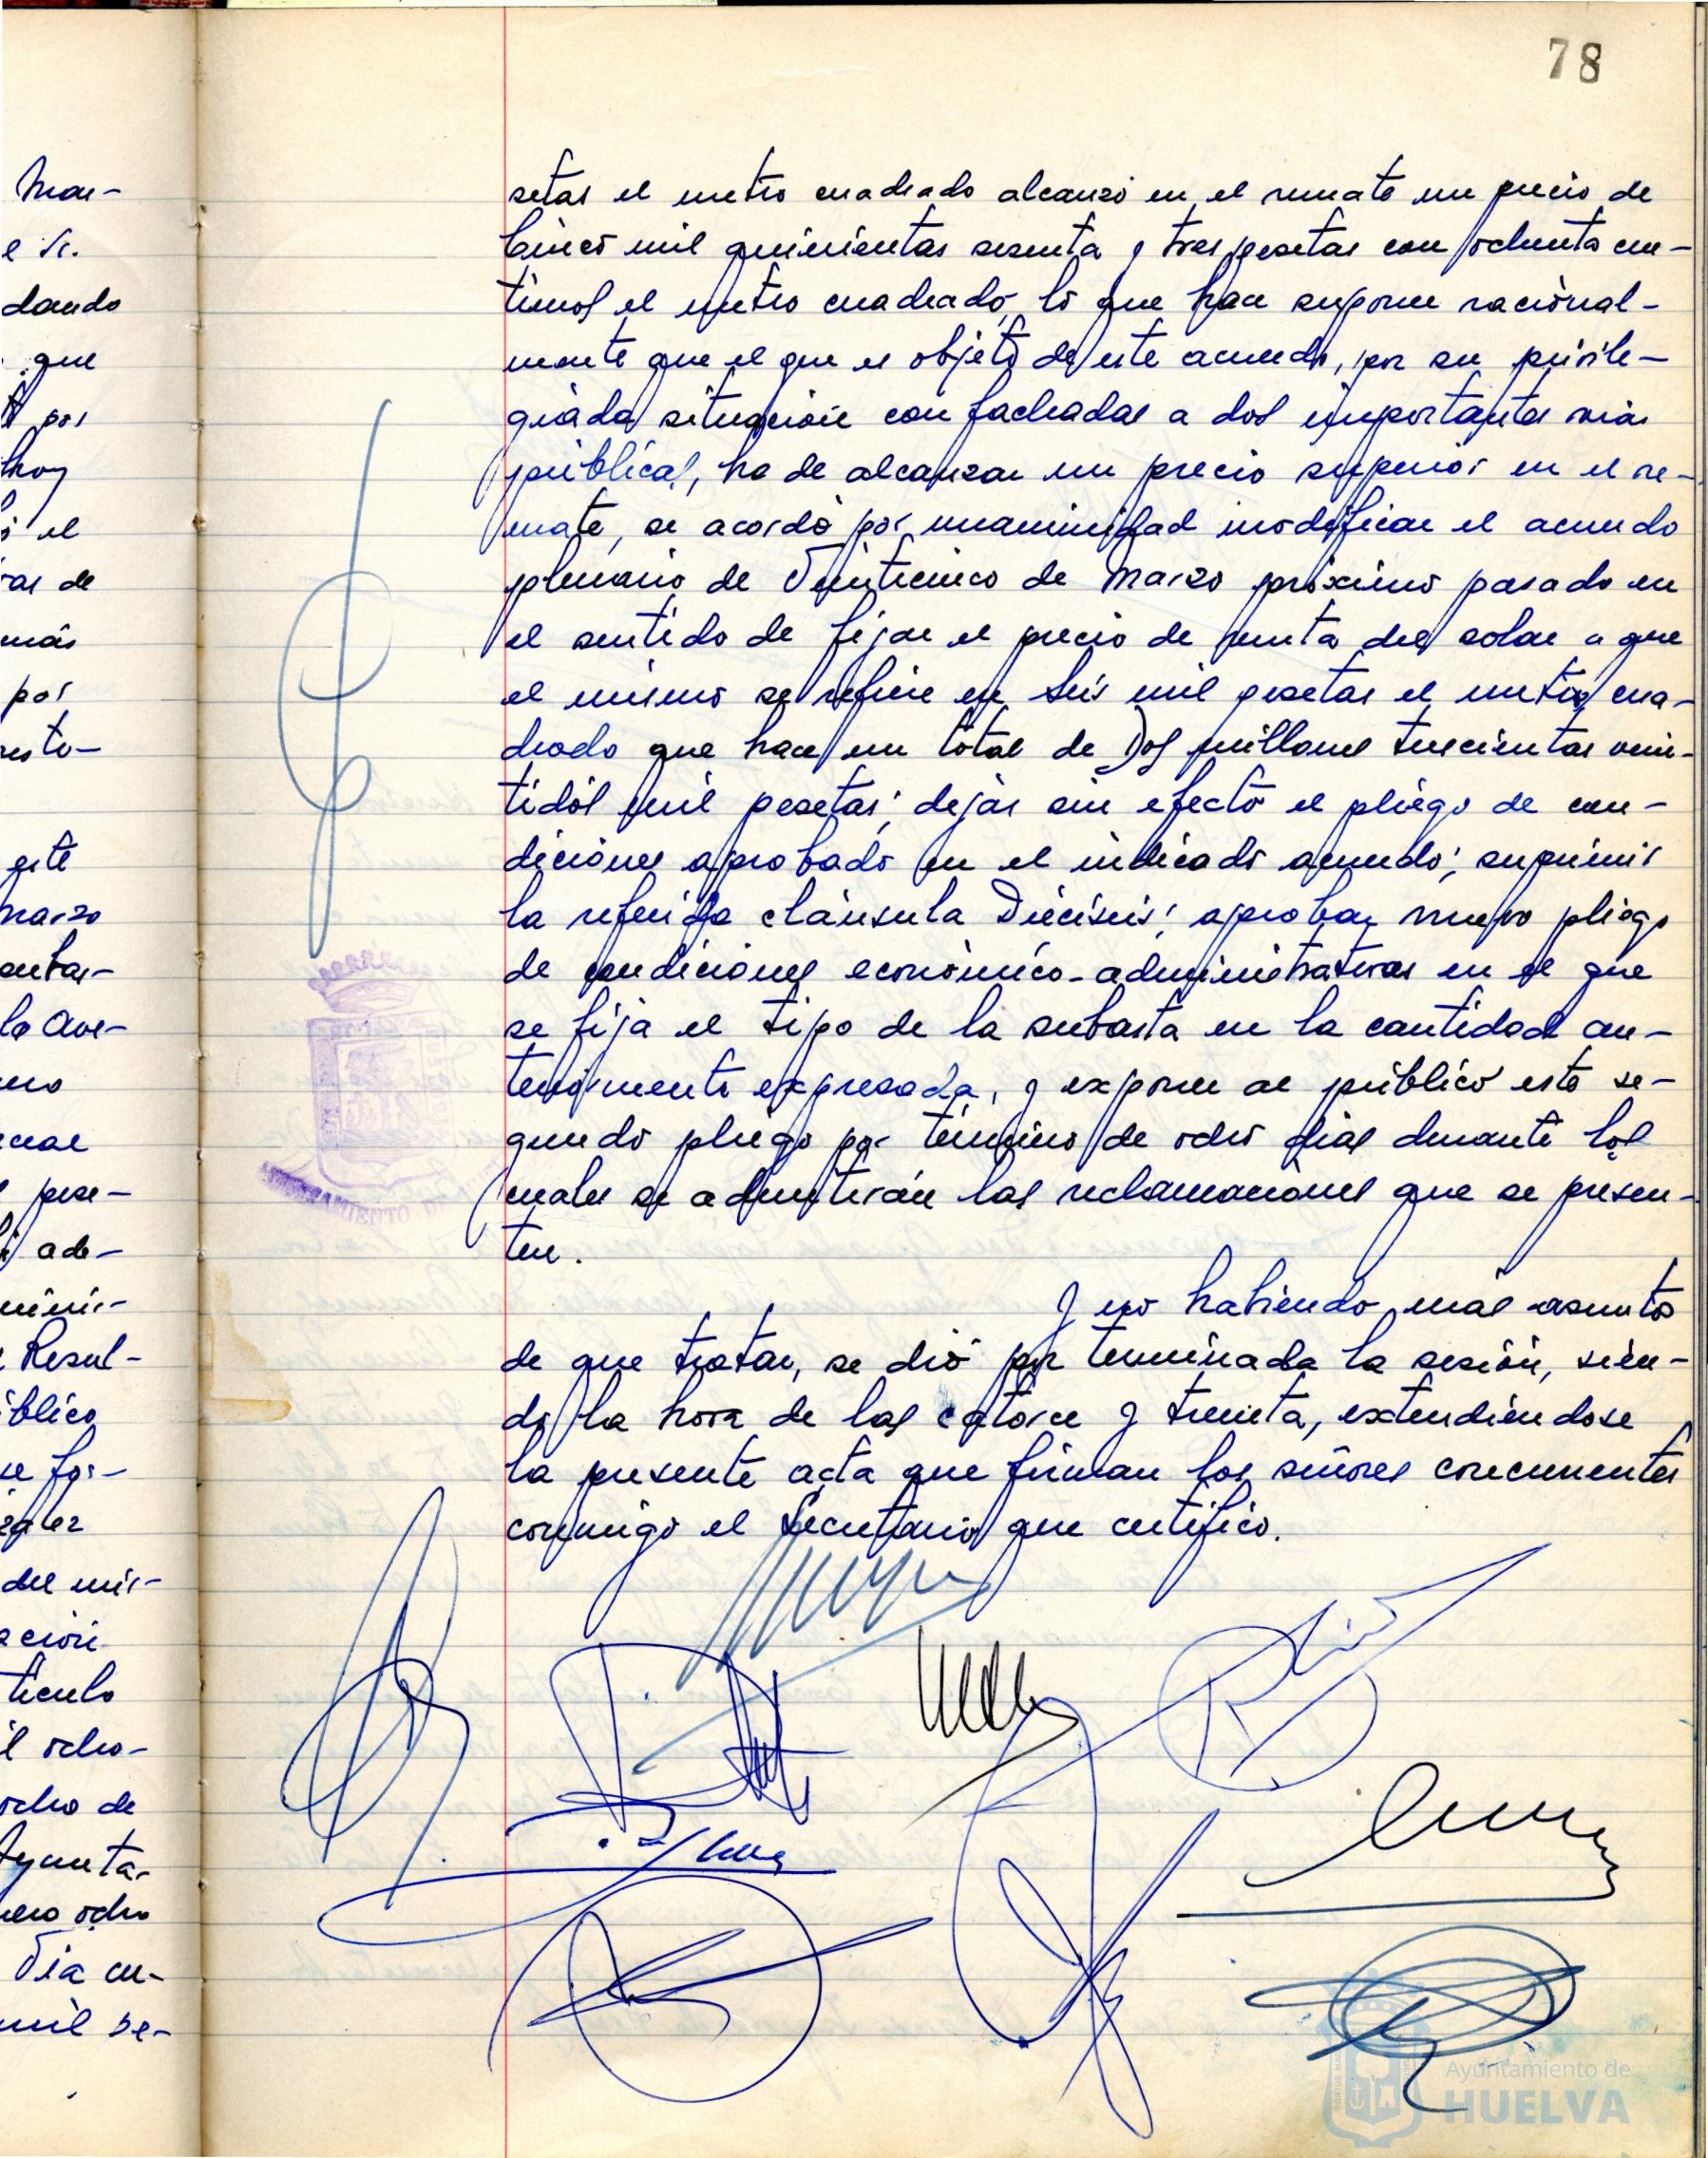 78
setas el metro cuadrado alcanzó en el remate un precio de
Cinco mil quinientas sesenta y tres pesetas con ochenta cen-
timos el metro cuadrado, lo que hace suponer racional-
mente que el que es objeto de este acuerdo, por su privile-
giada situación con fachadas a dos importantes vias
públicas, ha de alcanzar un precio superior en el re-
mate, se acordó por unanimidad modificar el acuerdo
plenario de Veinticinco de Marzo próximo pasado en
el sentido de fijar el precio de venta del solar a que
el mismo se refiere en Seis mil pesetas el metro cua-
drado que hace un total de Dos millones trescientas vein-
tidós mil pesetas; dejar sin efecto el pliego de con-
diciones aprobado en el indicado acuerdo; suprimir
la referida cláusula Dieciseis; aprobar nuevo pliego
de condiciones económico-administrativas en el que
se fija el tipo de la subasta en la cantidad an-
teriormente expresada, y exponer al público este se-
gundo pliego por término de ocho dias durante los
cuales se admitirán las reclamaciones que se presen-
ten.
Y no habiendo más asuntos
de que tratar, se dió por terminada la sesión, sien-
do la hora de las catorce y treinta, extendiéndose
la presente acta que firman los señores concurrentes
conmigo el Secretario que certifico.
Mar-
e Sr.
dando
que
por
hoy
el
ras de
más
por
esto-
este
marzo
la Ave-
pese-
ade-
Resul-
blico
se for-
del mis-
ación
tículo
l ocho-
ocho de
Ayunta-
ero ocho
Via cu-
mil se-
AYUNTAMIENTO DE
Ayuntamiento de
HUELVA